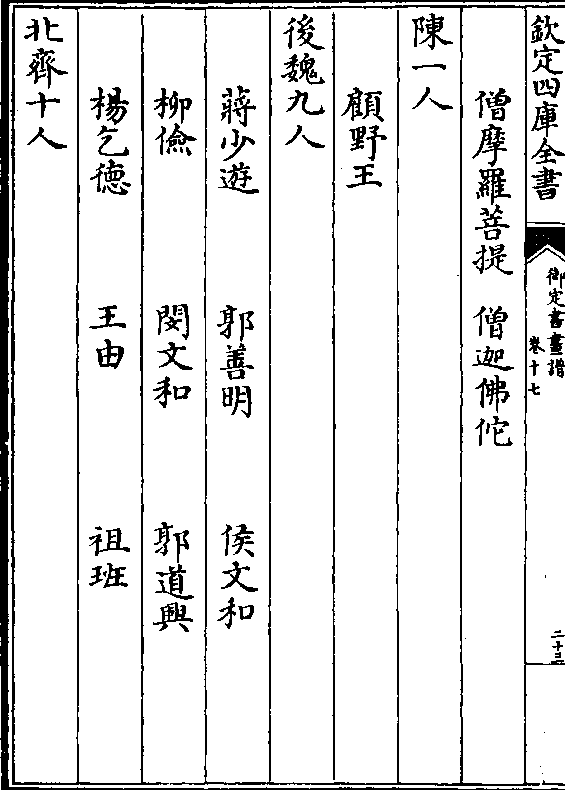 欽定四庫全書
御定書畫譜
卷十七
二十三
僧摩羅菩提 僧迦佛佗
陳一人
顧野王
後魏九人
蔣少遊 郭善明 侯文和
柳儉 閔文和 郭道興
楊乞德 王由 祖班
北齊十人